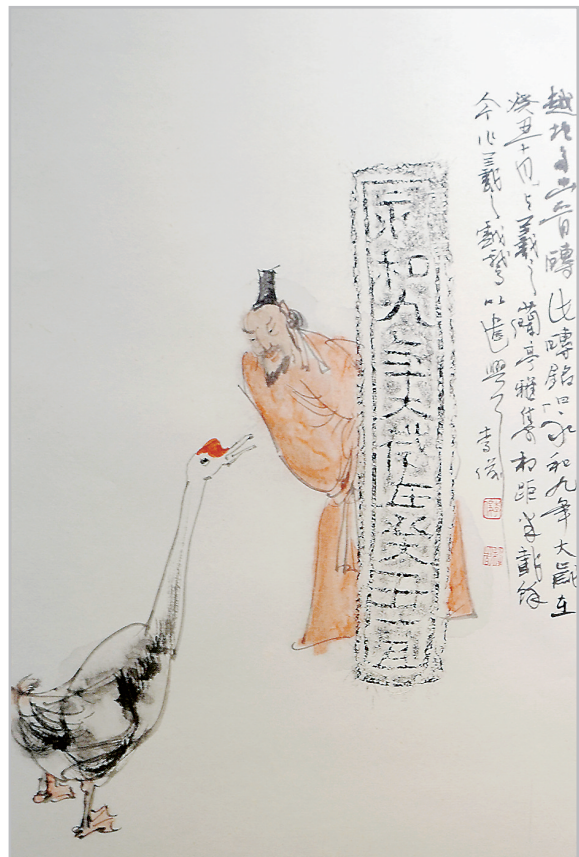 越地多出晋磚此磚銘曰永和九年大歲在
癸丑十月与羲之蘭亭雅集相距半載餘
今作羲之戲鵝以遣興
永和九年大歲在癸丑